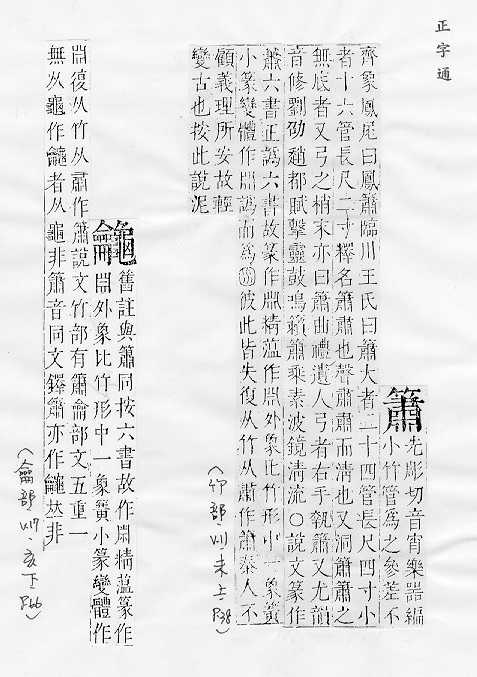 正字通
簫 先彫切音宵樂器編
小竹管爲之參差不
齊象鳳尾曰鳳簫臨川王氏曰簫大者二十四管長尺四寸小
者十六管長尺二寸釋名簫肅也聲肅肅而淸也又洞簫簫之
無底者又弓之梢末亦曰簫曲禮遺人弓者右手執簫又尤韻
音修劉劭趙都賦擊靈鼓鳴籟簫乘素波鏡淸流○說文篆作
簫六書正譌六書故篆作𠕋精薀作𠕋外象比竹形中一象簧
小篆變體作𠕋譌而爲 彼此皆失復从竹从肅作簫泰人不
顧義理所安故輕
變古也按此說泥
(竹部 未上 P38)
舊註與簫同按六書故作𠕋精薀篆作
𠕋外象比竹形中一象簧小篆變體作
𠕋復从竹从肅作簫說文竹部有簫龠部文五重一
無从龜作 者从龜非簫音同文鐸簫亦作 𠀤非
(龠部 亥下 P46)